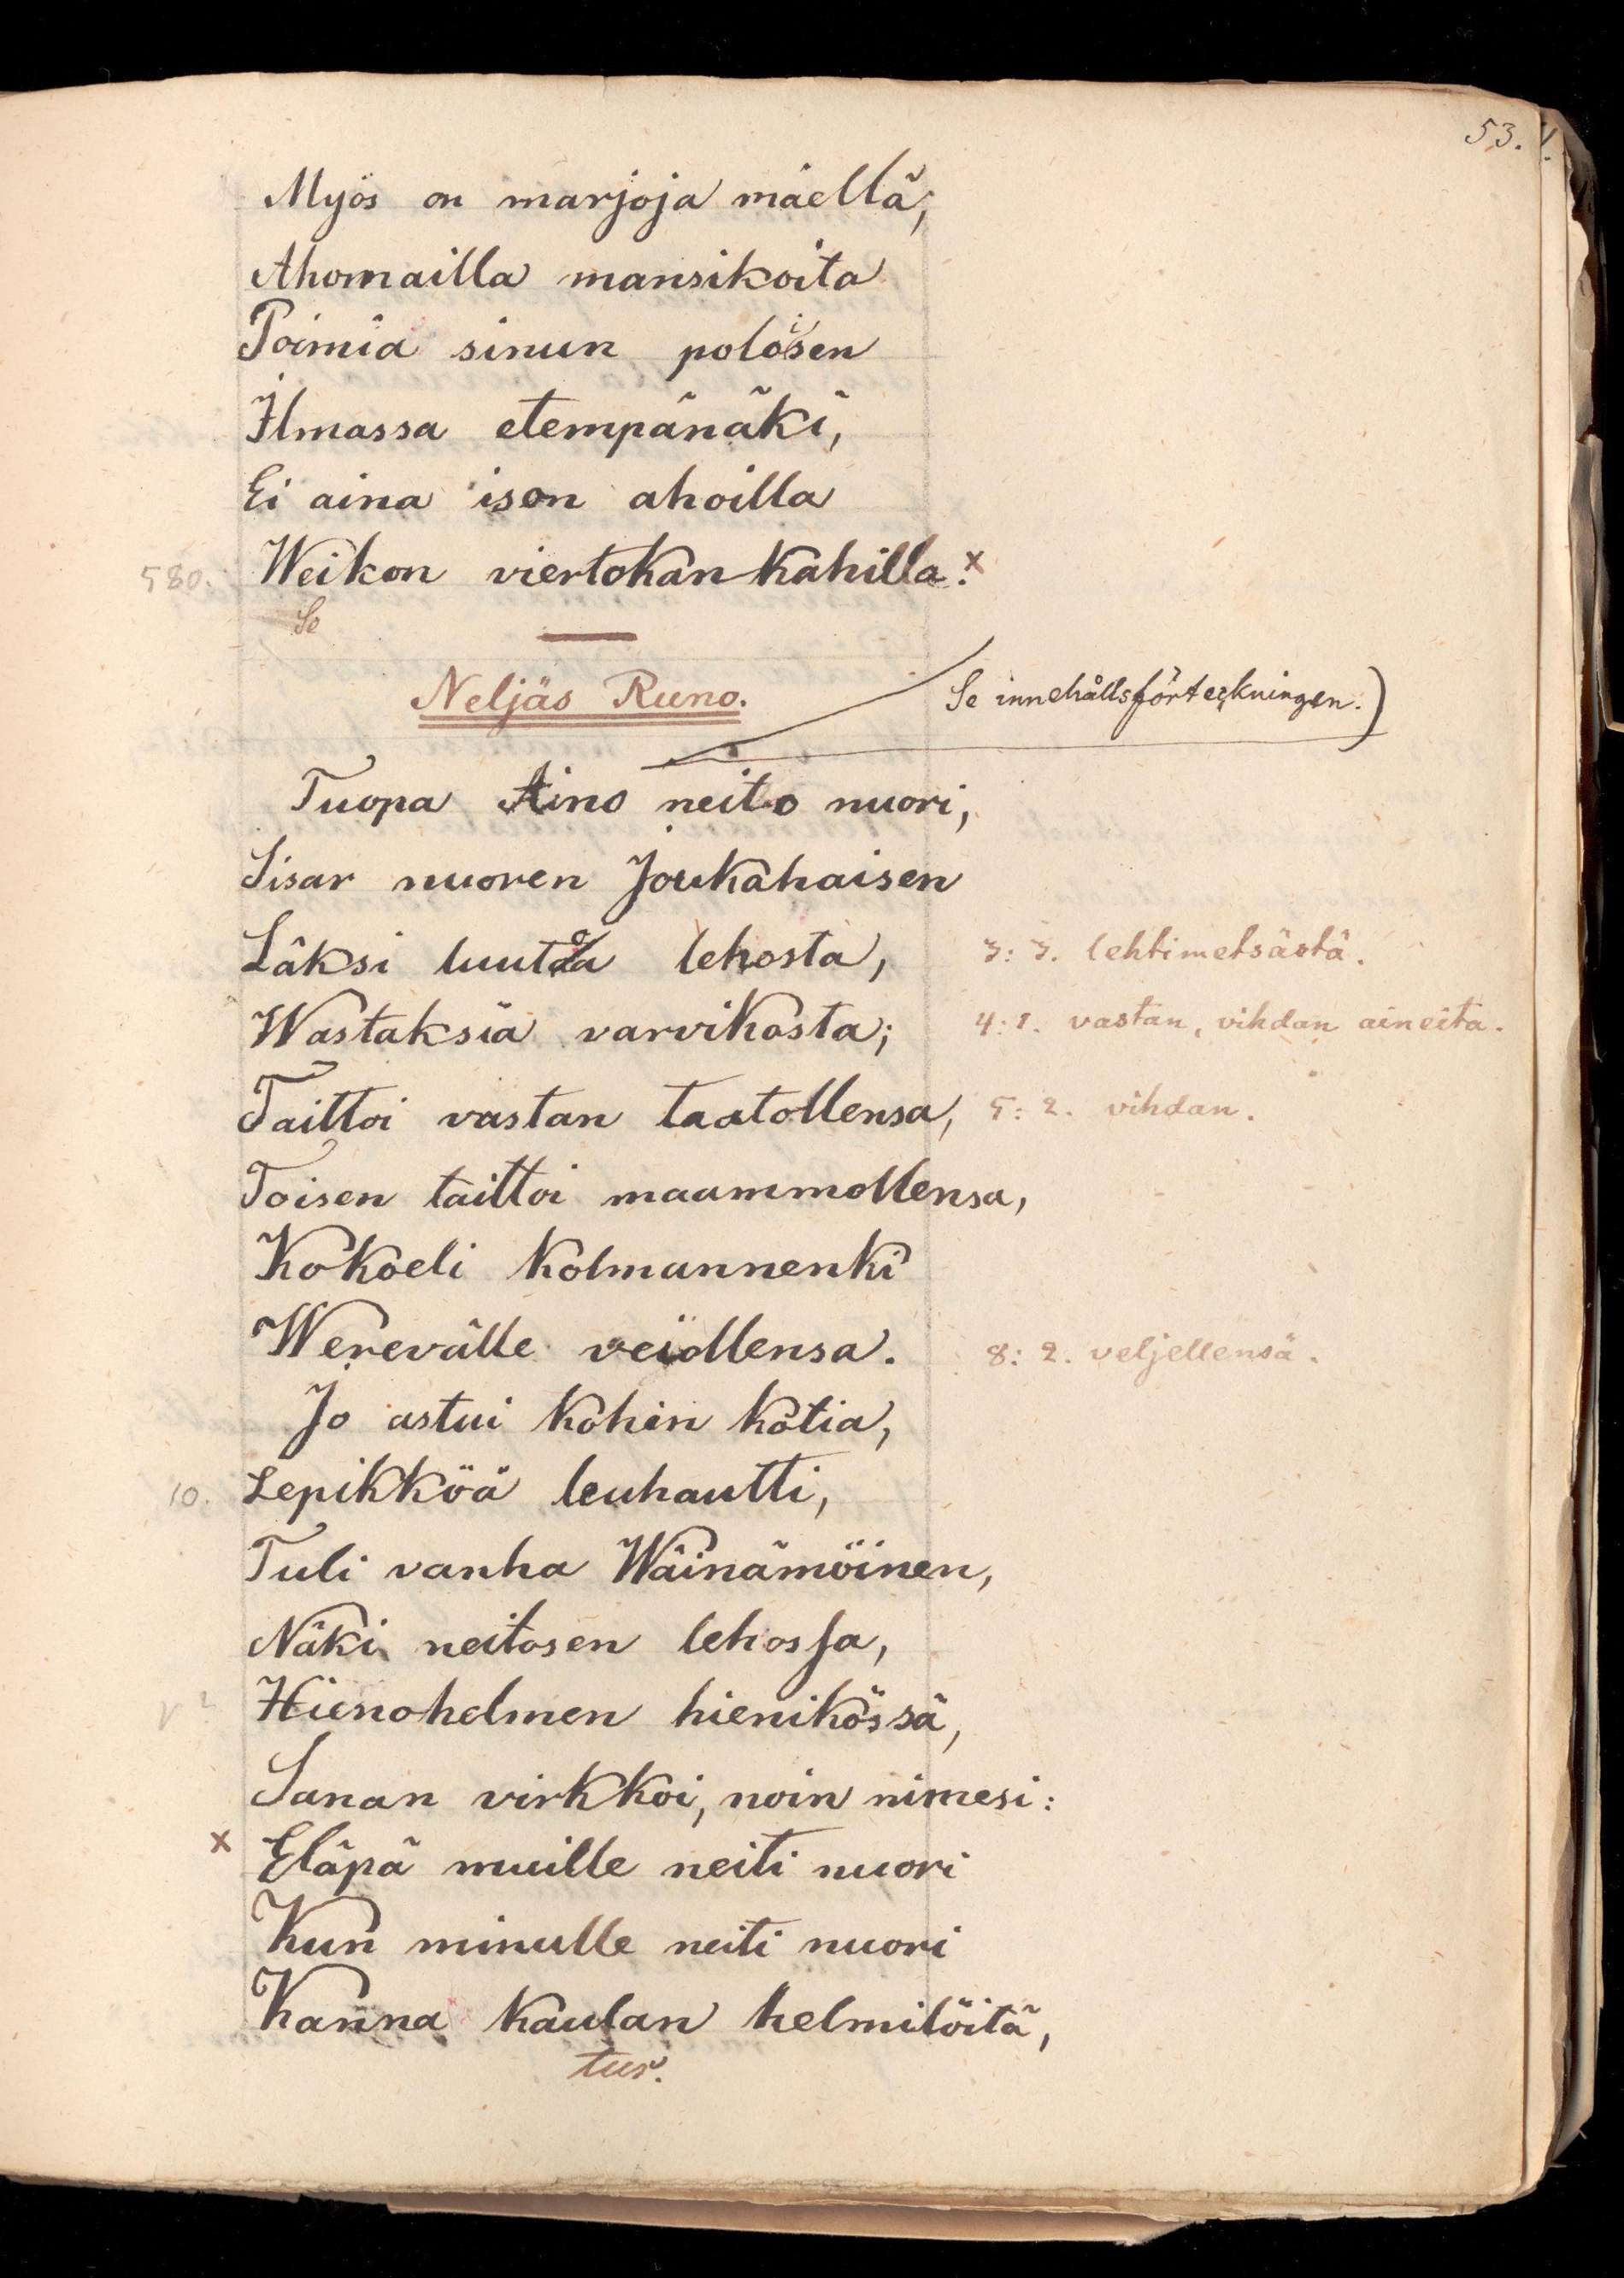 53.
Myös on marjoja mäellä,
Ahomailla mansikoita
Poimia sinun poloisen
Ilmassa etempänäki,
Ei aina ison ahoilla
580. Weikon viertokankahilla. x
Se
Neljäs Runo.
Se innehållsförteckningen.)
Tuopa Aino neito nuori,
Sisar nuoren Joukahaisen
Läksi luutoa lehosta, 3: 3. lehtimetsästä.
Wastaksia varvikosta; 4: 1. vastan, vihdan aineita.
Taittoi vastan taatollensa, 5: 2. vihdan.
Toisen taittoi maammollensa,
Kokoeli kolmannenki
Werevälle veiollensa. 8: 2. veljellensä.
Jo astui kohin kotia,
10. Lepikköä leuhautti,
Tuli vanha Wäinämöinen,
Näki neitosen lehossa,
Hienohelmen hienikössä,
Sanan virkkoi, noin nimesi:
x Eläpä muille neiti nuori
Kun minulle neiti nuori
Kanna kaulan helmilöitä,